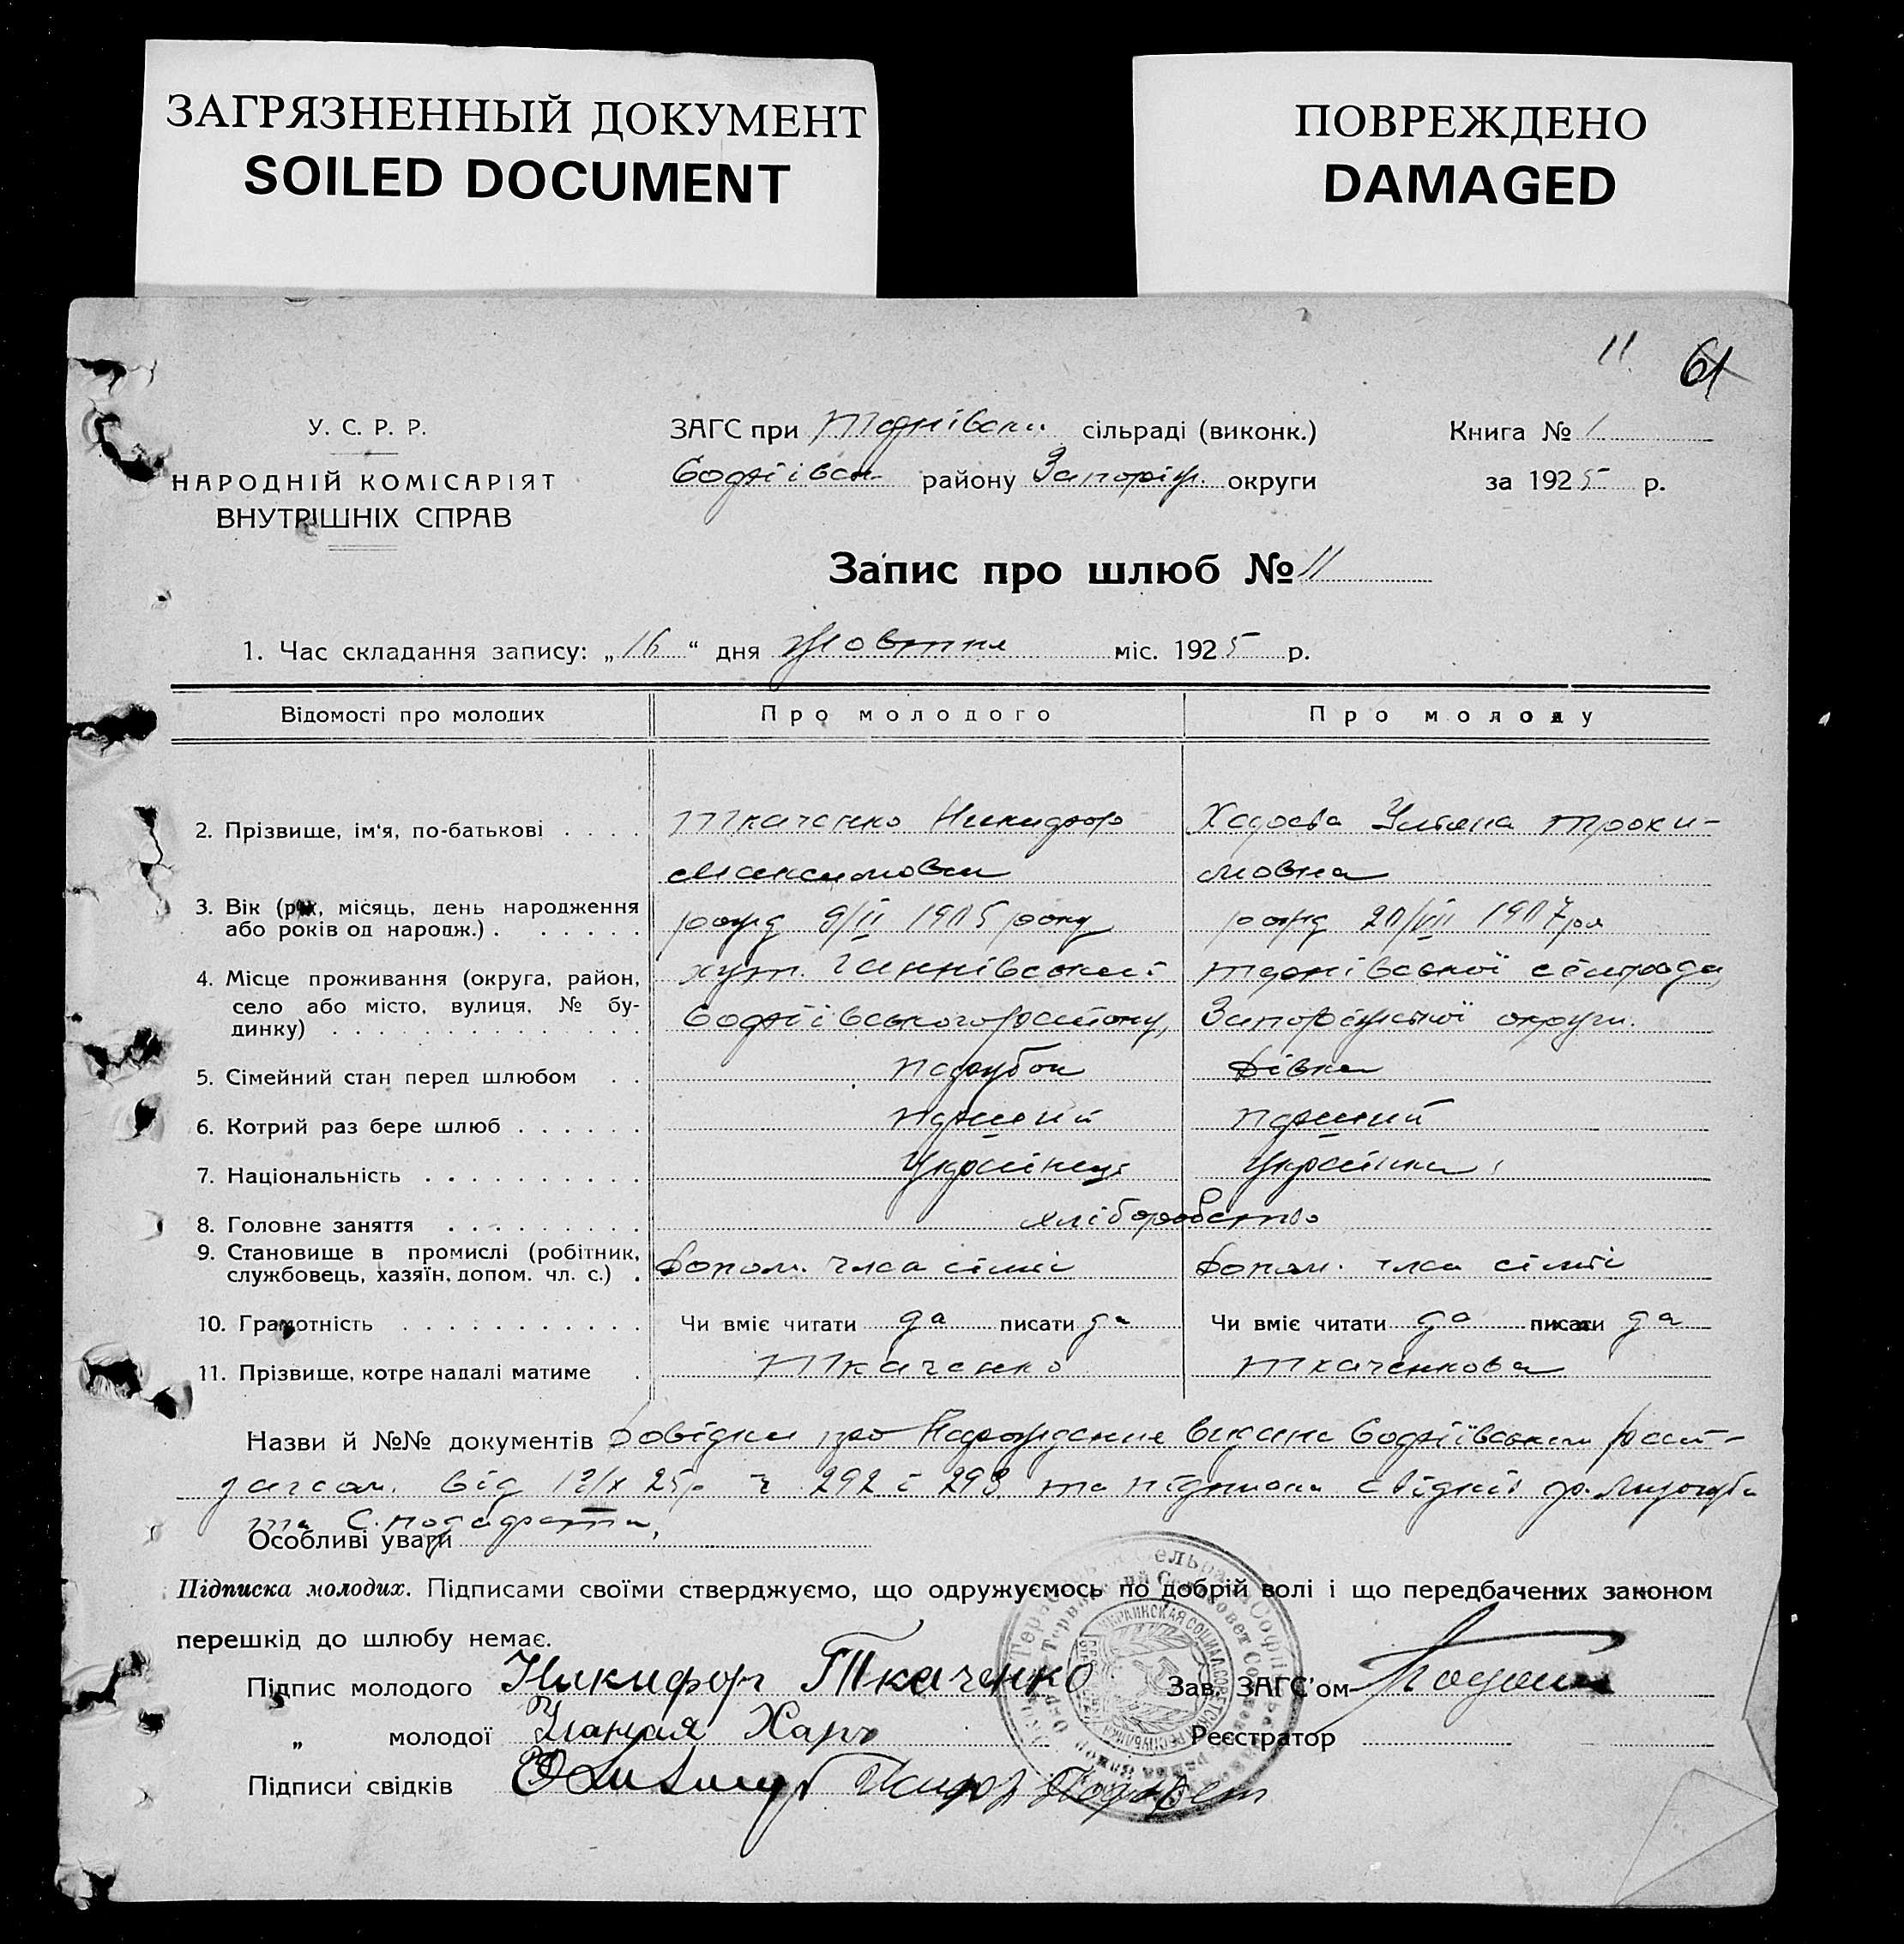 ЗАГРЯЗНЕННЫЙ ДОКУМЕНТ
SOILED DOCUMENT
ПОВРЕЖДЕНО
DAMAGED
11 61
У. С. Р. Р.
НАРОДНІЙ КОМІСАРІЯТ
ВНУТРІШНІХ СПРАВ
ЗАГС при Тернівськ. сільраді (виконк.)
Софіївськ. району Запоріж. округи
Книга № 1
за 1925 р.
Запис про шлюб № 11
1. Час складання запису: „16“ дня Жовтня міс. 1925 р.
Відомості про молодих Про молодого Про молоду
2. Прізвище, ім'я, по-батькові Ткаченко Никифор Харова Уляна Трохи-
Максимович мовна
3. Вік (рік, місяць, день народження або років од народж.) рожд 9/II 1905 року рожд 20/VII 1907 ро
4. Місце проживання (округа, район, село або місто, вулиця, № будинку) хут. Ганнівський Тернівської сільради,
Софіївського району, Запоріжської округи.
5. Сімейний стан перед шлюбом парубок дівка
6. Котрий раз бере шлюб перший перший
7. Національність Українець Українка
8. Головне заняття хліборобство
9. Становище в промислі (робітник, службовець, хазяїн, допом. чл. с.) допом. член сімї допом. член сімї
10. Грамотність Чи вміє читати да писати да Чи вміє читати да писати да
11. Прізвище, котре надалі матиме Ткаченко Ткаченкова
Назви й №№ документів Довідки про Нарождение видані Софіївським рай-
загсом. від 12/X 25 р. ч 292 і 293, та підписка свідків
та С.
Особливі уваги
Підписка молодих. Підписами своїми стверджуємо, що одружуємось по добрій волі і що передбачених законом
перешкід до шлюбу немає.
Підпис молодого Никифор Ткаченко Зав. ЗАГС'ом
„ молодої Уляная Харь Реєстратор
Підписи свідків
УКРАИНСКАЯ СОЦИАЛ. СОВЕТСКАЯ РЕСПУБЛИКА